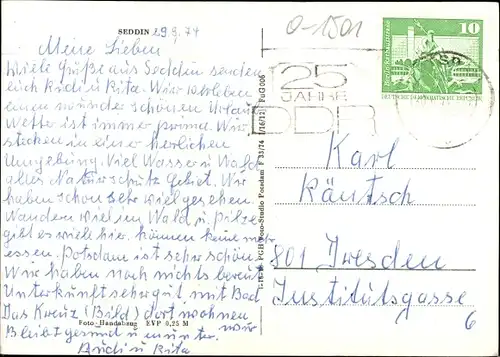 SEDDIN 29.9.74
0-1501
Meine Lieben
Viele Grüße aus Seddin senden
euch Rudi u Rita. Wir erleben
einen wunderschönen Urlaub
Wetter ist immer prima. Wir
stecken in einer herlichen
Umgebung. Viel Wasser u Wald
alles Naturschutz Gebiet. Wir
haben schon sehr viel gesehen.
Wandern viel im Wald u. Pilze
gibt es viele hier. können keine mehr
essen. Potsdam ist sehr schön
Wir haben noch nichts bereut
Unterkunft sehr gut mit Bad
Das Kreuz (Bild) dort wohnen
wir
Bleibt gesund u munter
Rudi u Rita
Foto-Handabzug EVP 0,25 M
PGH Foto-Studio Potsdam F 33/74
25
JAHRE
DDR
10
DEUTSCHE DEMOKRATISCHE REPUBLIK
Karl
Käntsch
801 Dresden
Institutsgasse
6